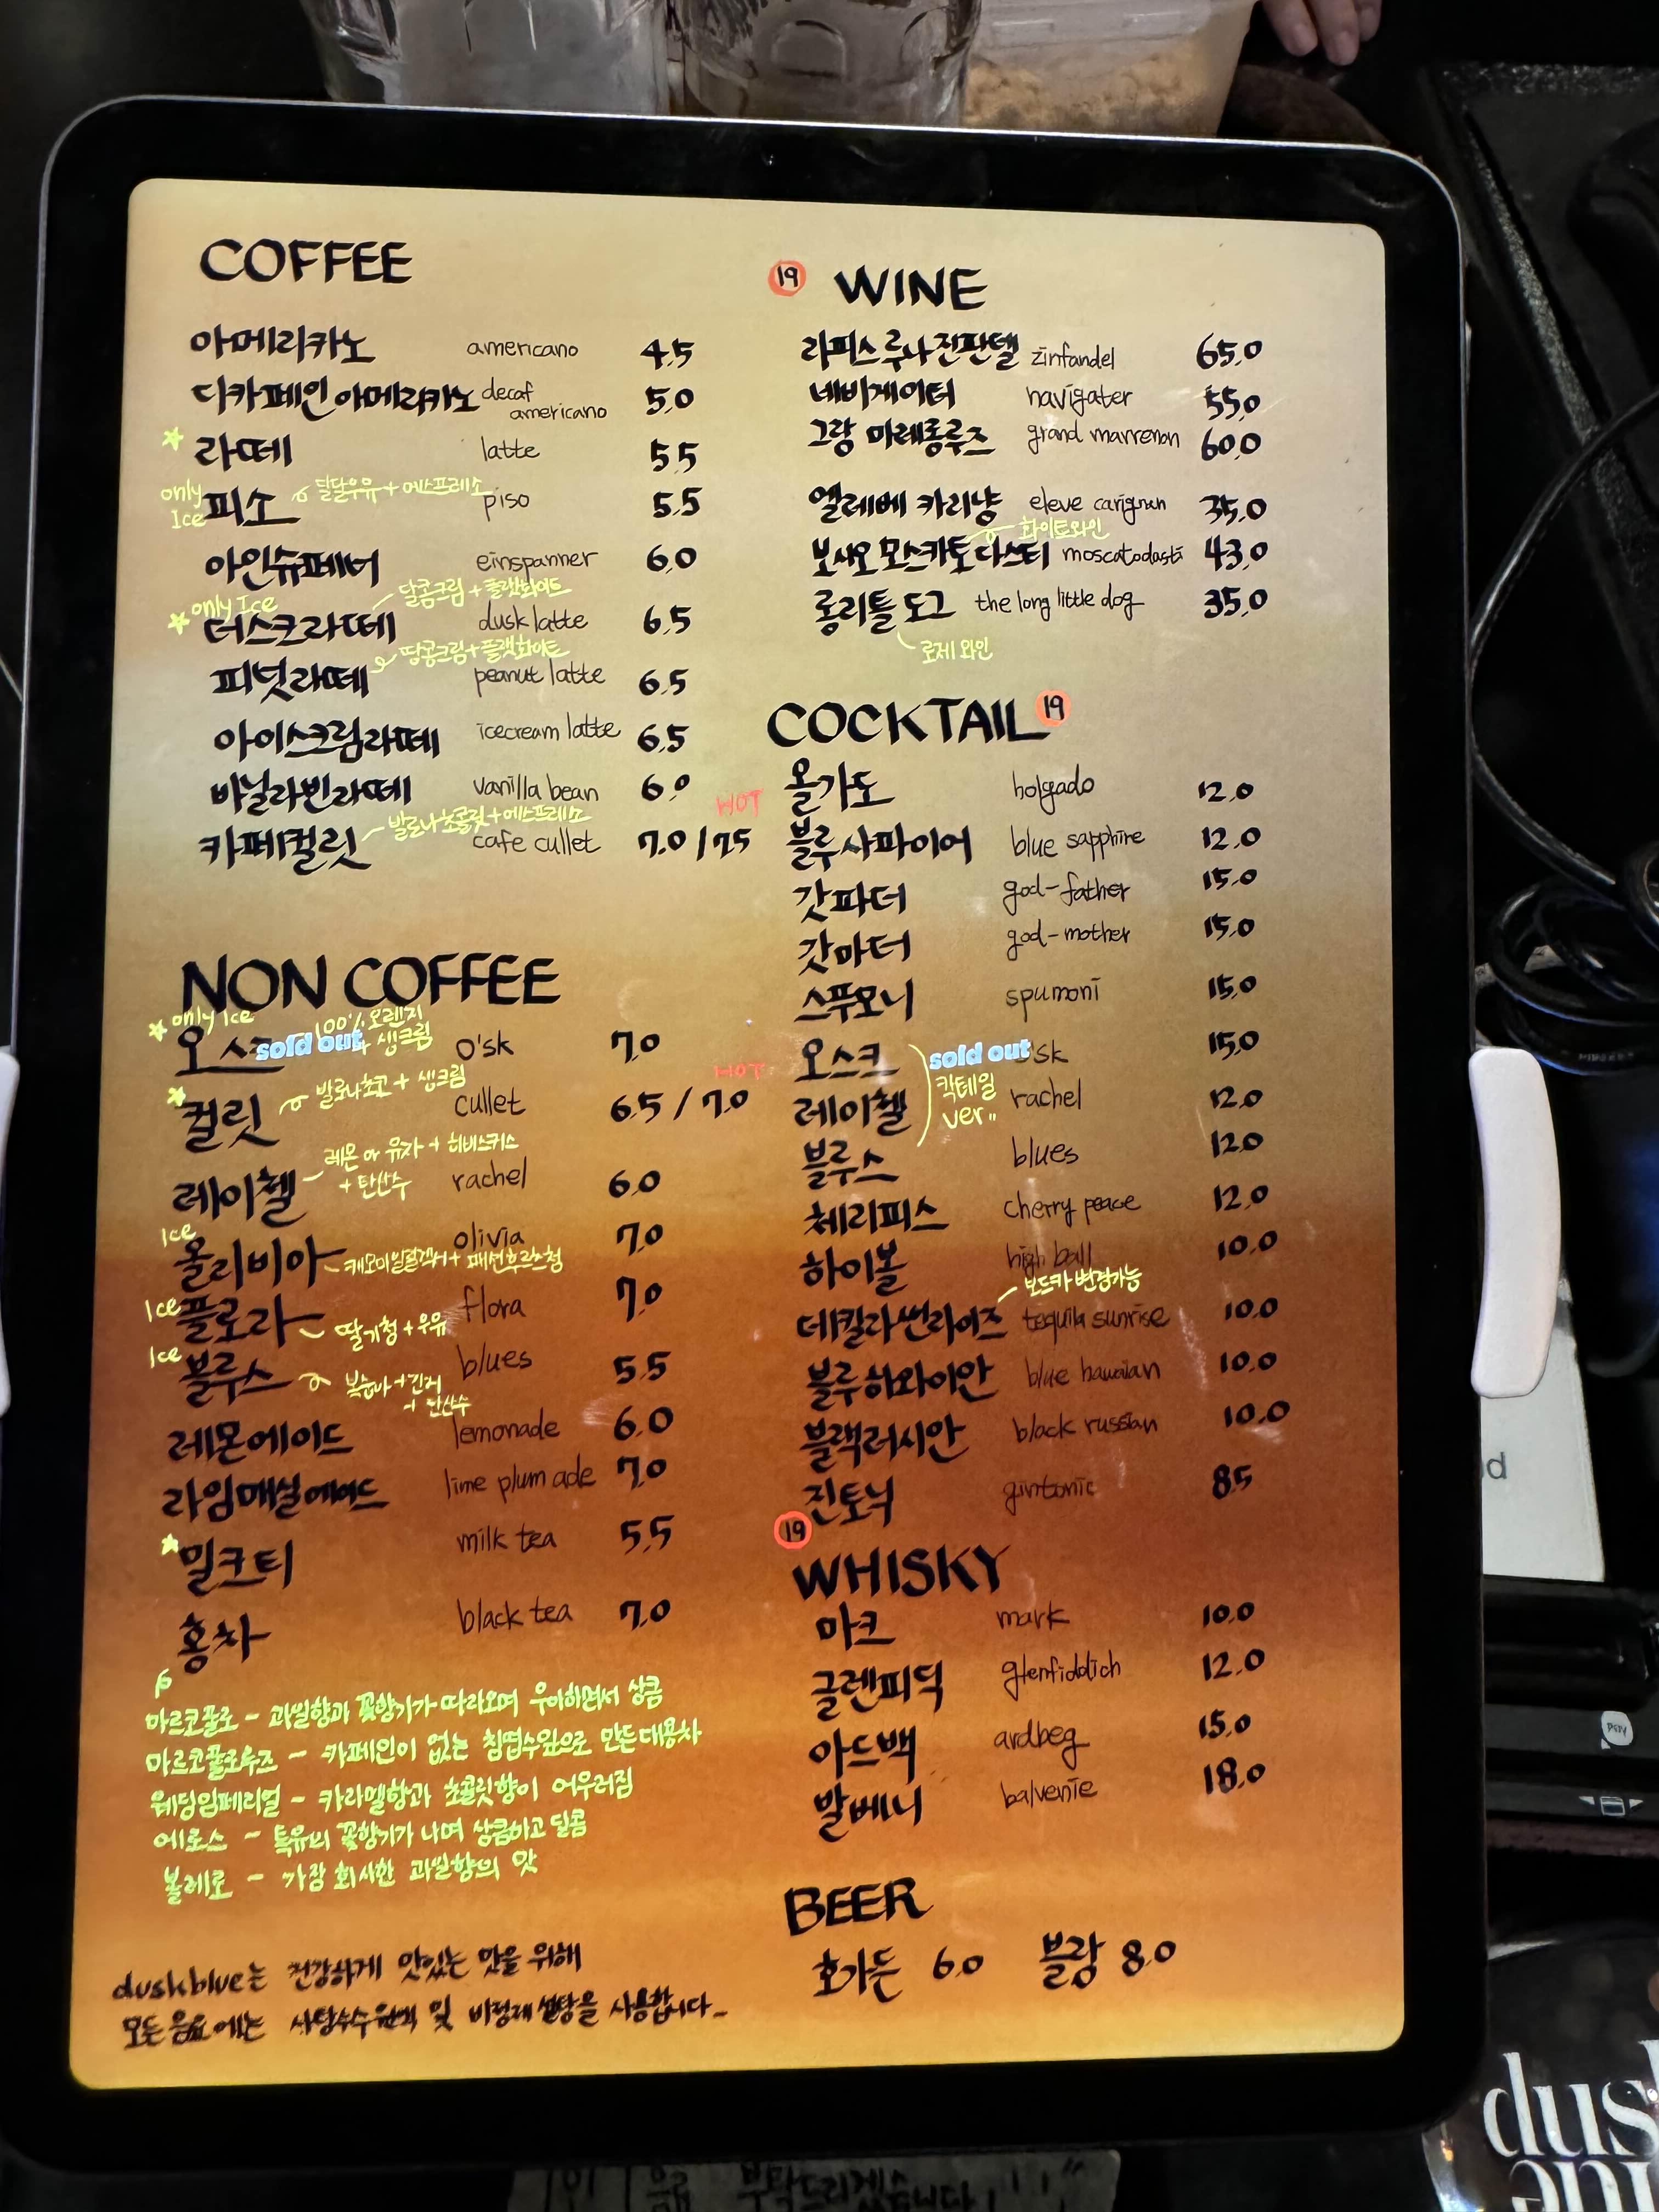 COFFEE
아메리카노 americano 4.5
디카페인 아메리카노 decaf americano 5.0
라떼 latte 5.5
only Ice 피소 달달우유+에스프레소 piso 5.5
아인슈페너 einspanner 6.0
only Ice 더스크라떼 달콤크림+플랫화이트 dusk latte 6.5
피넛라떼 땅콩크림+플랫화이트 peanut latte 6.5
아이스크림라떼 icecream latte 6.5
바닐라빈라떼 vanilla bean 6.0
카페컬릿 발로나초콜릿+에스프레소 cafe cullet 7.0 / 7.5 HOT
NON COFFEE
only Ice 오스크 sold out 100% 오렌지 + 생크림 o'sk 7.0
컬릿 발로나초코 + 생크림 cullet 6.5 / 7.0 HOT
레이첼 레몬 or 유자 + 히비스커스 + 탄산수 rachel 6.0
Ice 올리비아 olivia 7.0
패션후르츠청
Ice 플로라 딸기청+우유 flora 7.0
Ice 블루스 복숭아+진저 + 탄산수 blues 5.5
레몬에이드 lemonade 6.0
라임매실에이드 lime plum ade 7.0
밀크티 milk tea 5.5
홍차 black tea 7.0
마르코폴로 - 과일향과 꽃향기가 따라오며 우아하면서 상큼
마르코폴로루즈 - 카페인이 없는 침엽수잎으로 만든 대용차
웨딩임페리얼 - 카라멜향과 초콜릿향이 어우러짐
에로스 - 특유의 꽃향기가 나며 상큼하고 달콤
볼레로 - 가장 화사한 과일향의 맛
duskblue는 건강하게 맛있는 맛을 위해
모든음료에는 사탕수수원액 및 비정제 설탕을 사용합니다_
19 WINE
라피스 루나 진판델 zinfandel 65.0
네비게이터 navigater 55.0
그랑 마레롱루즈 grand marrenon 60.0
엘레베 카리냥 eleve carignan 35.0
화이트와인
보시오 모스카토 다스티 moscatodasti 43.0
롱리틀 도그 the long little dog 35.0
로제 와인
COCKTAIL 19
올가도 holgado 12.0
블루사파이어 blue sapphire 12.0
갓파더 god-father 15.0
갓마더 god-mother 15.0
스푸모니 spumoni 15.0
오스크 sold out sk 15.0
레이첼 칵테일 ver" rachel 12.0
블루스 blues 12.0
체리피스 cherry peace 12.0
하이볼 high ball 10.0
보드카 변경가능
데킬라썬라이즈 tequila sunrise 10.0
블루하와이안 blue hawaiian 10.0
블랙러시안 black russian 10.0
진토닉 gintonic 8.5
19
WHISKY
마크 mark 10.0
글렌피딕 glenfiddich 12.0
아드벡 ardbeg 15.0
발베니 balvenie 18.0
BEER
호가든 6.0 블랑 8.0
dus